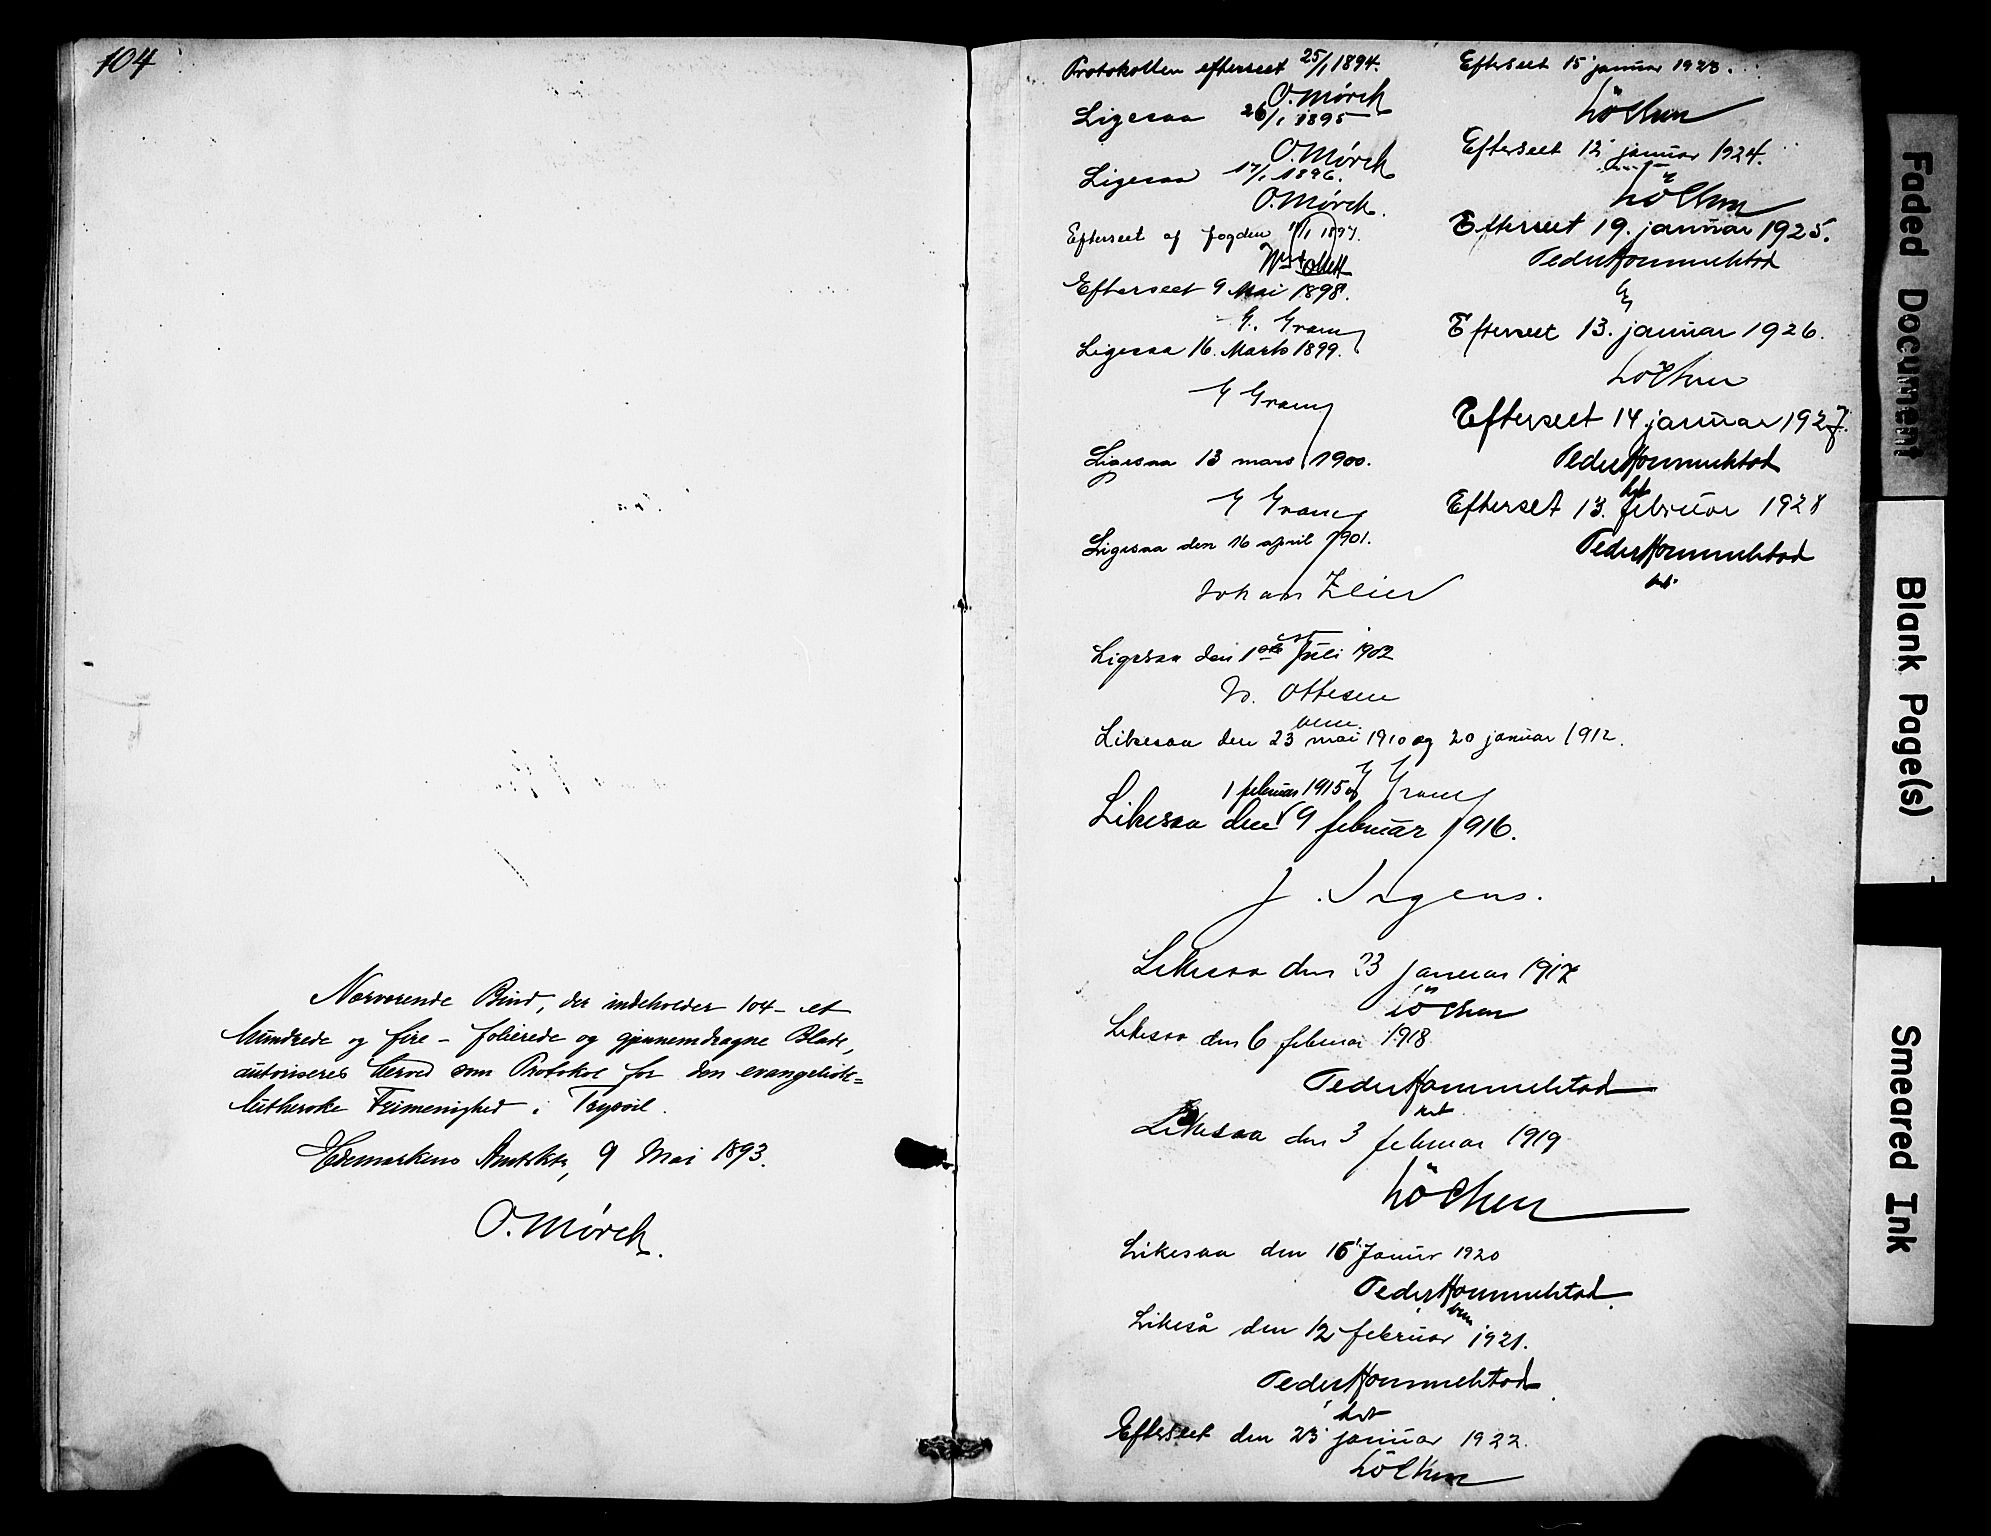 104
Nærværende Bind, der indeholder 104 - et
hundrede og fire - folierede og gjennemdragne Blade,
autoriseres herved som Protokol for den evangelisk=
lutherske Frimenighed i Trysil.
Hedemarkens Amtskt, 9 Mai 1893.
O. Mørch.
Protokollen efterseet 25/1 1894.
O. Mørch
Ligesaa 26/1 1895
O. Mørch
Ligesaa 17/1 1896.
O. Mørch.
Efterseet af fogden 1/1 1897.
Efterseet 9 Mai 1898.
G. Gram
Ligesaa 16. Marts 1899.
G Gram
Ligesaa 13 mars 1900.
G Gram
Ligesaa den 16 april 1901.
Johan
Ligesaa den 1ste Juli 1902
Ottesen
Likesaa den 23 mai 1910 og 20 januar 1912.
G Gram
1 februar 1915 og
Likesaa den 9 februar 1916.
J. Irgens.
Likesaa den 23 januar 1917
Löchen
Likesaa den 6 februar 1918
Peder Hommelstad
Likesaa den 3 februar 1919
Löchen
Likesaa den 16 Januar 1920
Peder Hommelstad
Likeså den 12 februar 1921.
Peder Hommelstad
Efterseet den 23 januar 1922.
Löchen
Efterseet 15 januar 1923.
Löchen
Efterseet 12 januar 1924.
Löchen
Efterseet 19. januar 1925.
Peder Hommelstad
Efterseet 13. januar 1926.
Löchen
Efterseet 14 januar 1927.
Peder Hommelstad
Efterset 13. februar 1928
Peder Hommelstad
Faded Document
Blank Page(s)
Smeared Ink